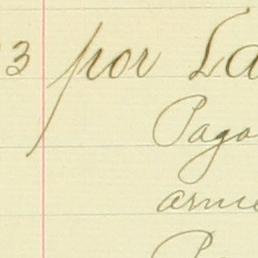 3 por La
Pago
arme